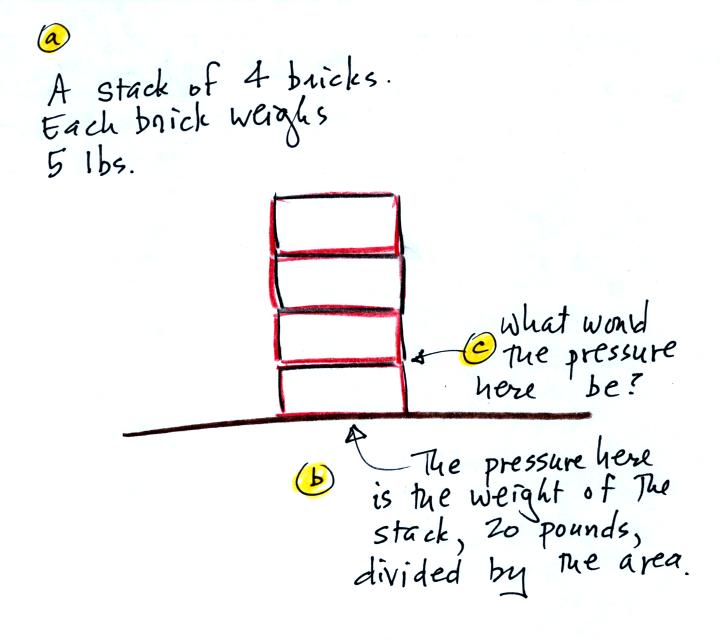 a
A stack of 4 bricks.
Each brick weighs
5 lbs.
c
what would
the pressure
here be?
b
The pressure here
is the weight of The
stack, 20 pounds,
divided by the area.